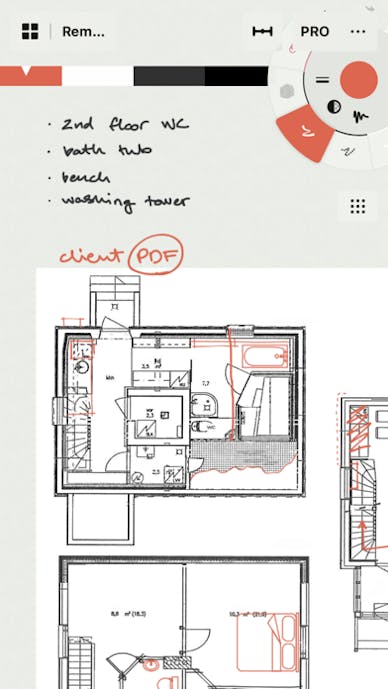 Rem...
PRO
· 2nd floor WC
· bath tub
· bench
· washing tower
client PDF
3,5
khh
7,7
2,3
WC
2,5
8,8 m² (18,3)